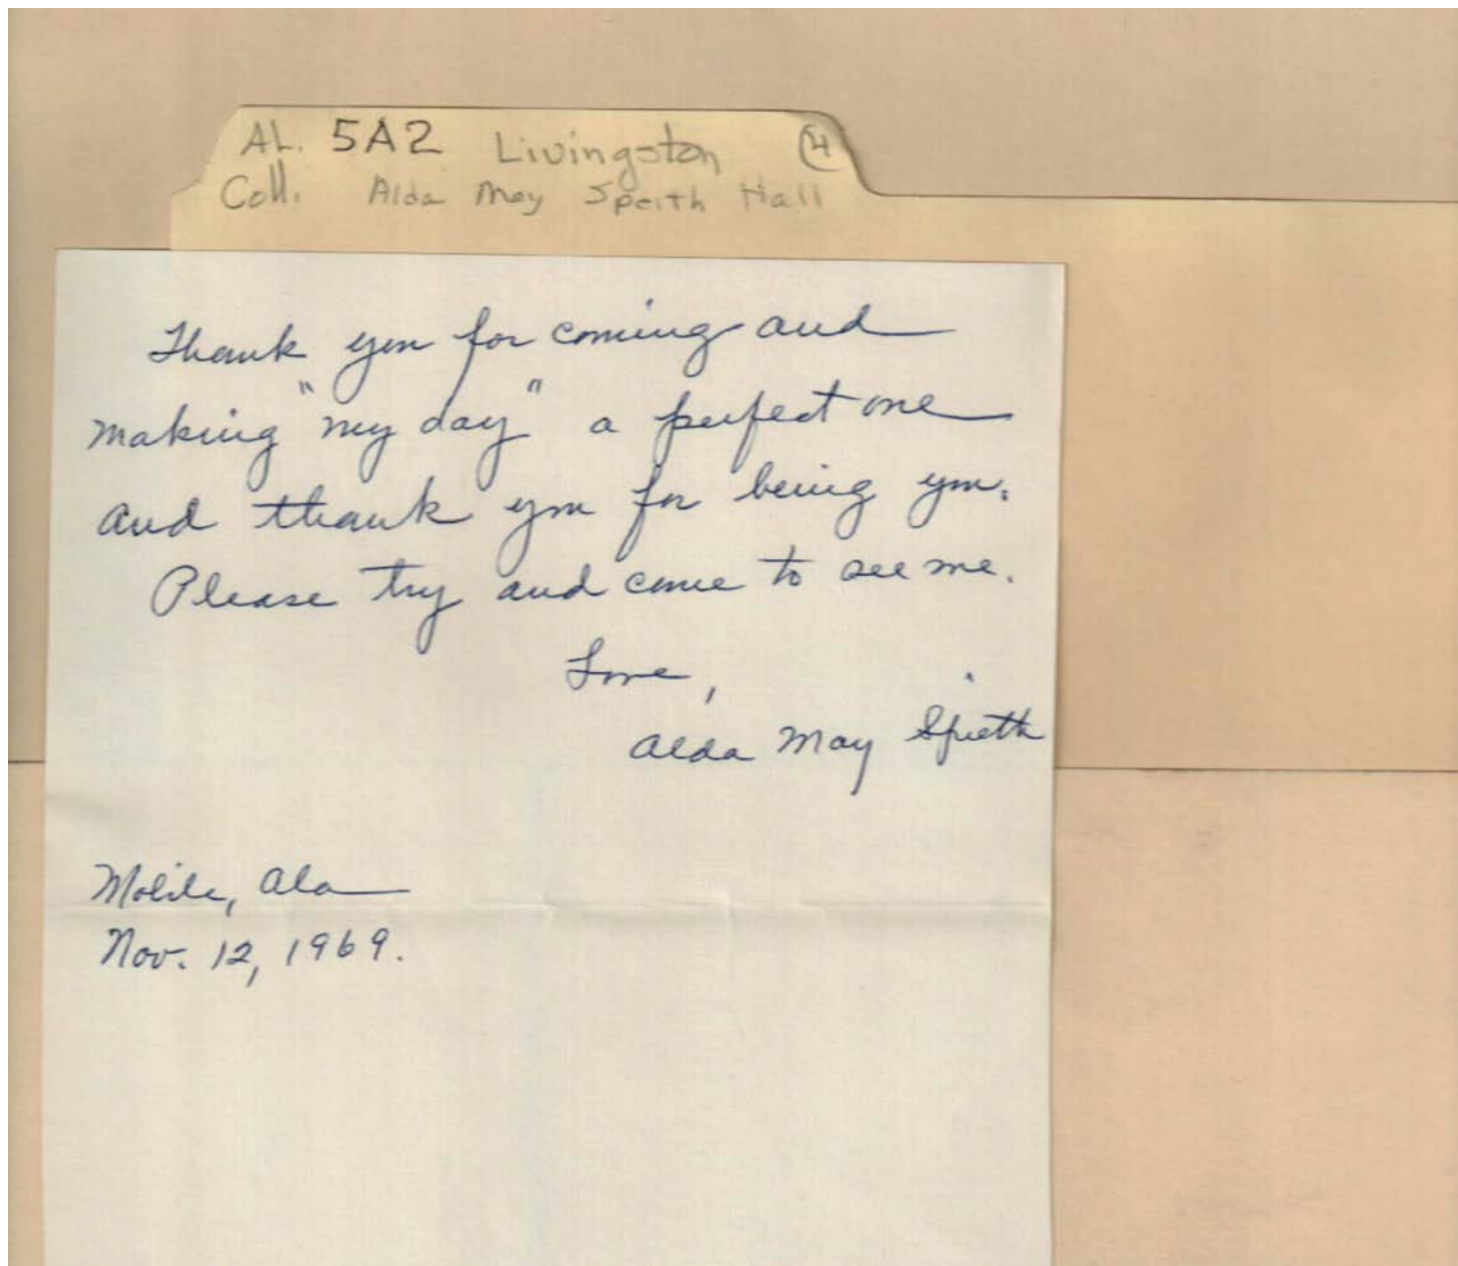 AL. 5A2 Livingston 4
Coll. Alda May Speith Hall
Thank you for coming and
making "my day" a perfect one
and thank you for being you.
Please try and come to see me.
Love,
Alda May Spieth
Mobile, Ala
Nov. 12, 1969.